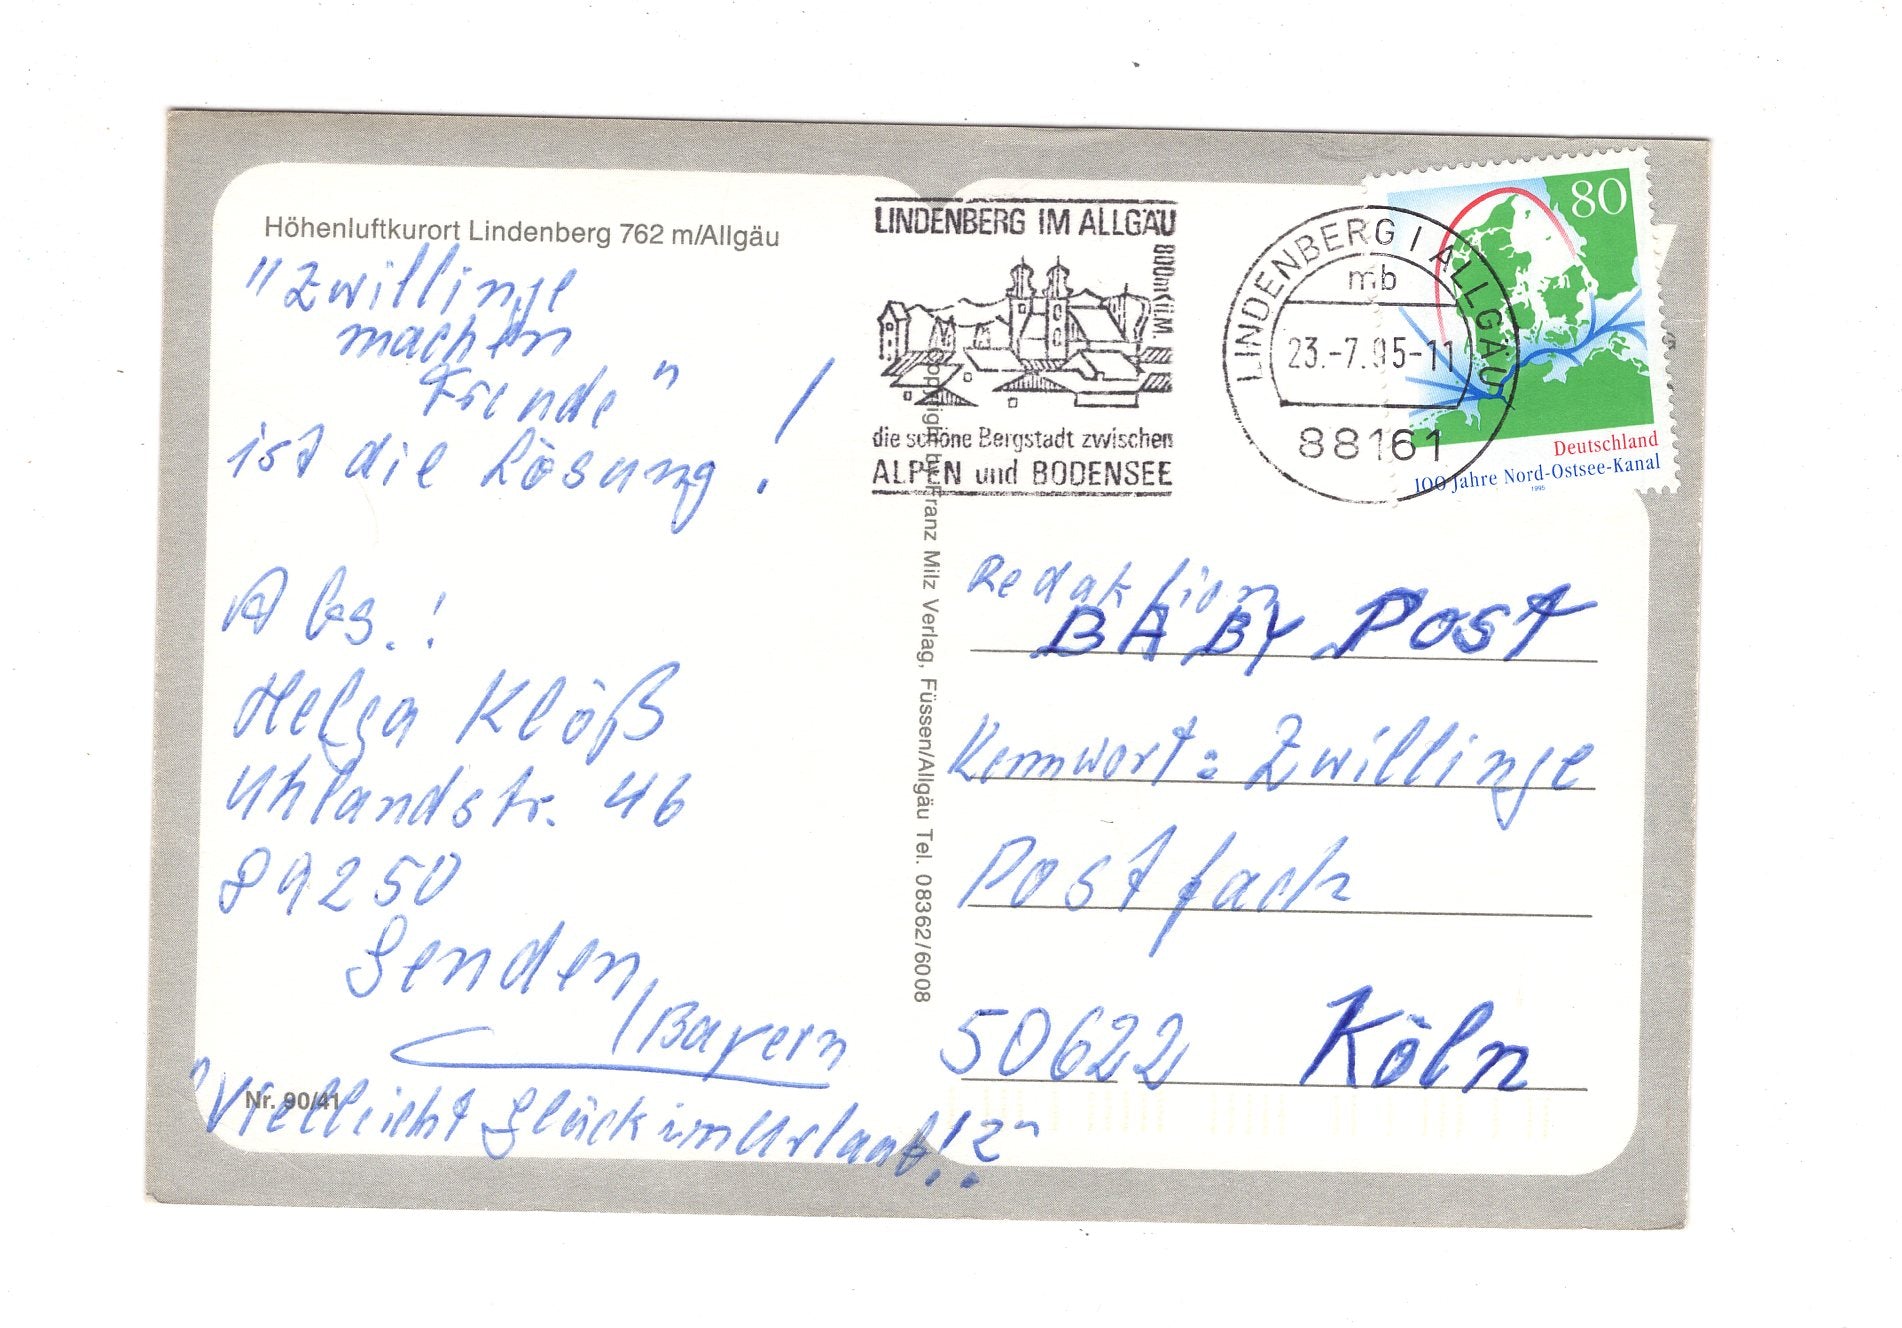 Höhenluftkurort Lindenberg 762 m/Allgäu
"Zwillinge
machen
Freude"
ist die Lösung!
Abs.!
Helga Klöß
Uhlandstr. 46
89250
Senden/
Bayern
Nr. 90/41
"Vielleicht Glück im Urlaub!?"
Copyright by Franz Milz Verlag, Füssen/Allgäu Tel. 08362/6008
LINDENBERG IM ALLGÄU
800m ü.M.
die schöne Bergstadt zwischen
ALPEN und BODENSEE
LINDENBERG I ALLGÄU
mb
23.-7.95-11
88161
80
Deutschland
100 Jahre Nord-Ostsee-Kanal
1995
Redaktion
BABY Post
Kennwort: Zwillinge
Postfach
50622 Köln